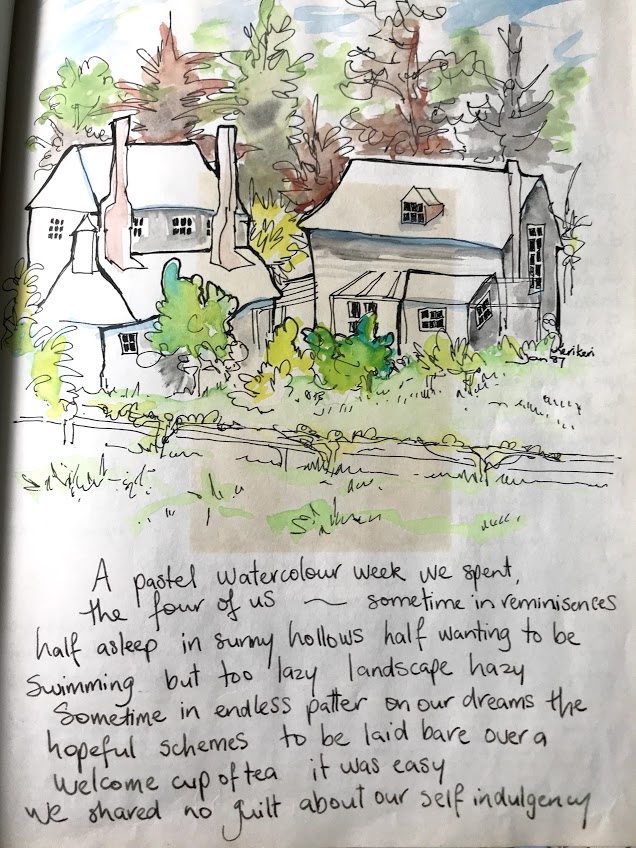 Kerikeri
Jan 87
A pastel watercolour week we spent,
the four of us ~ sometime in reminisences
half asleep in sunny hollows half wanting to be
swimming but too lazy landscape hazy
Sometime in endless patter on our dreams the
hopeful schemes to be laid bare over a
welcome cup of tea it was easy
we shared no guilt about our self indulgency